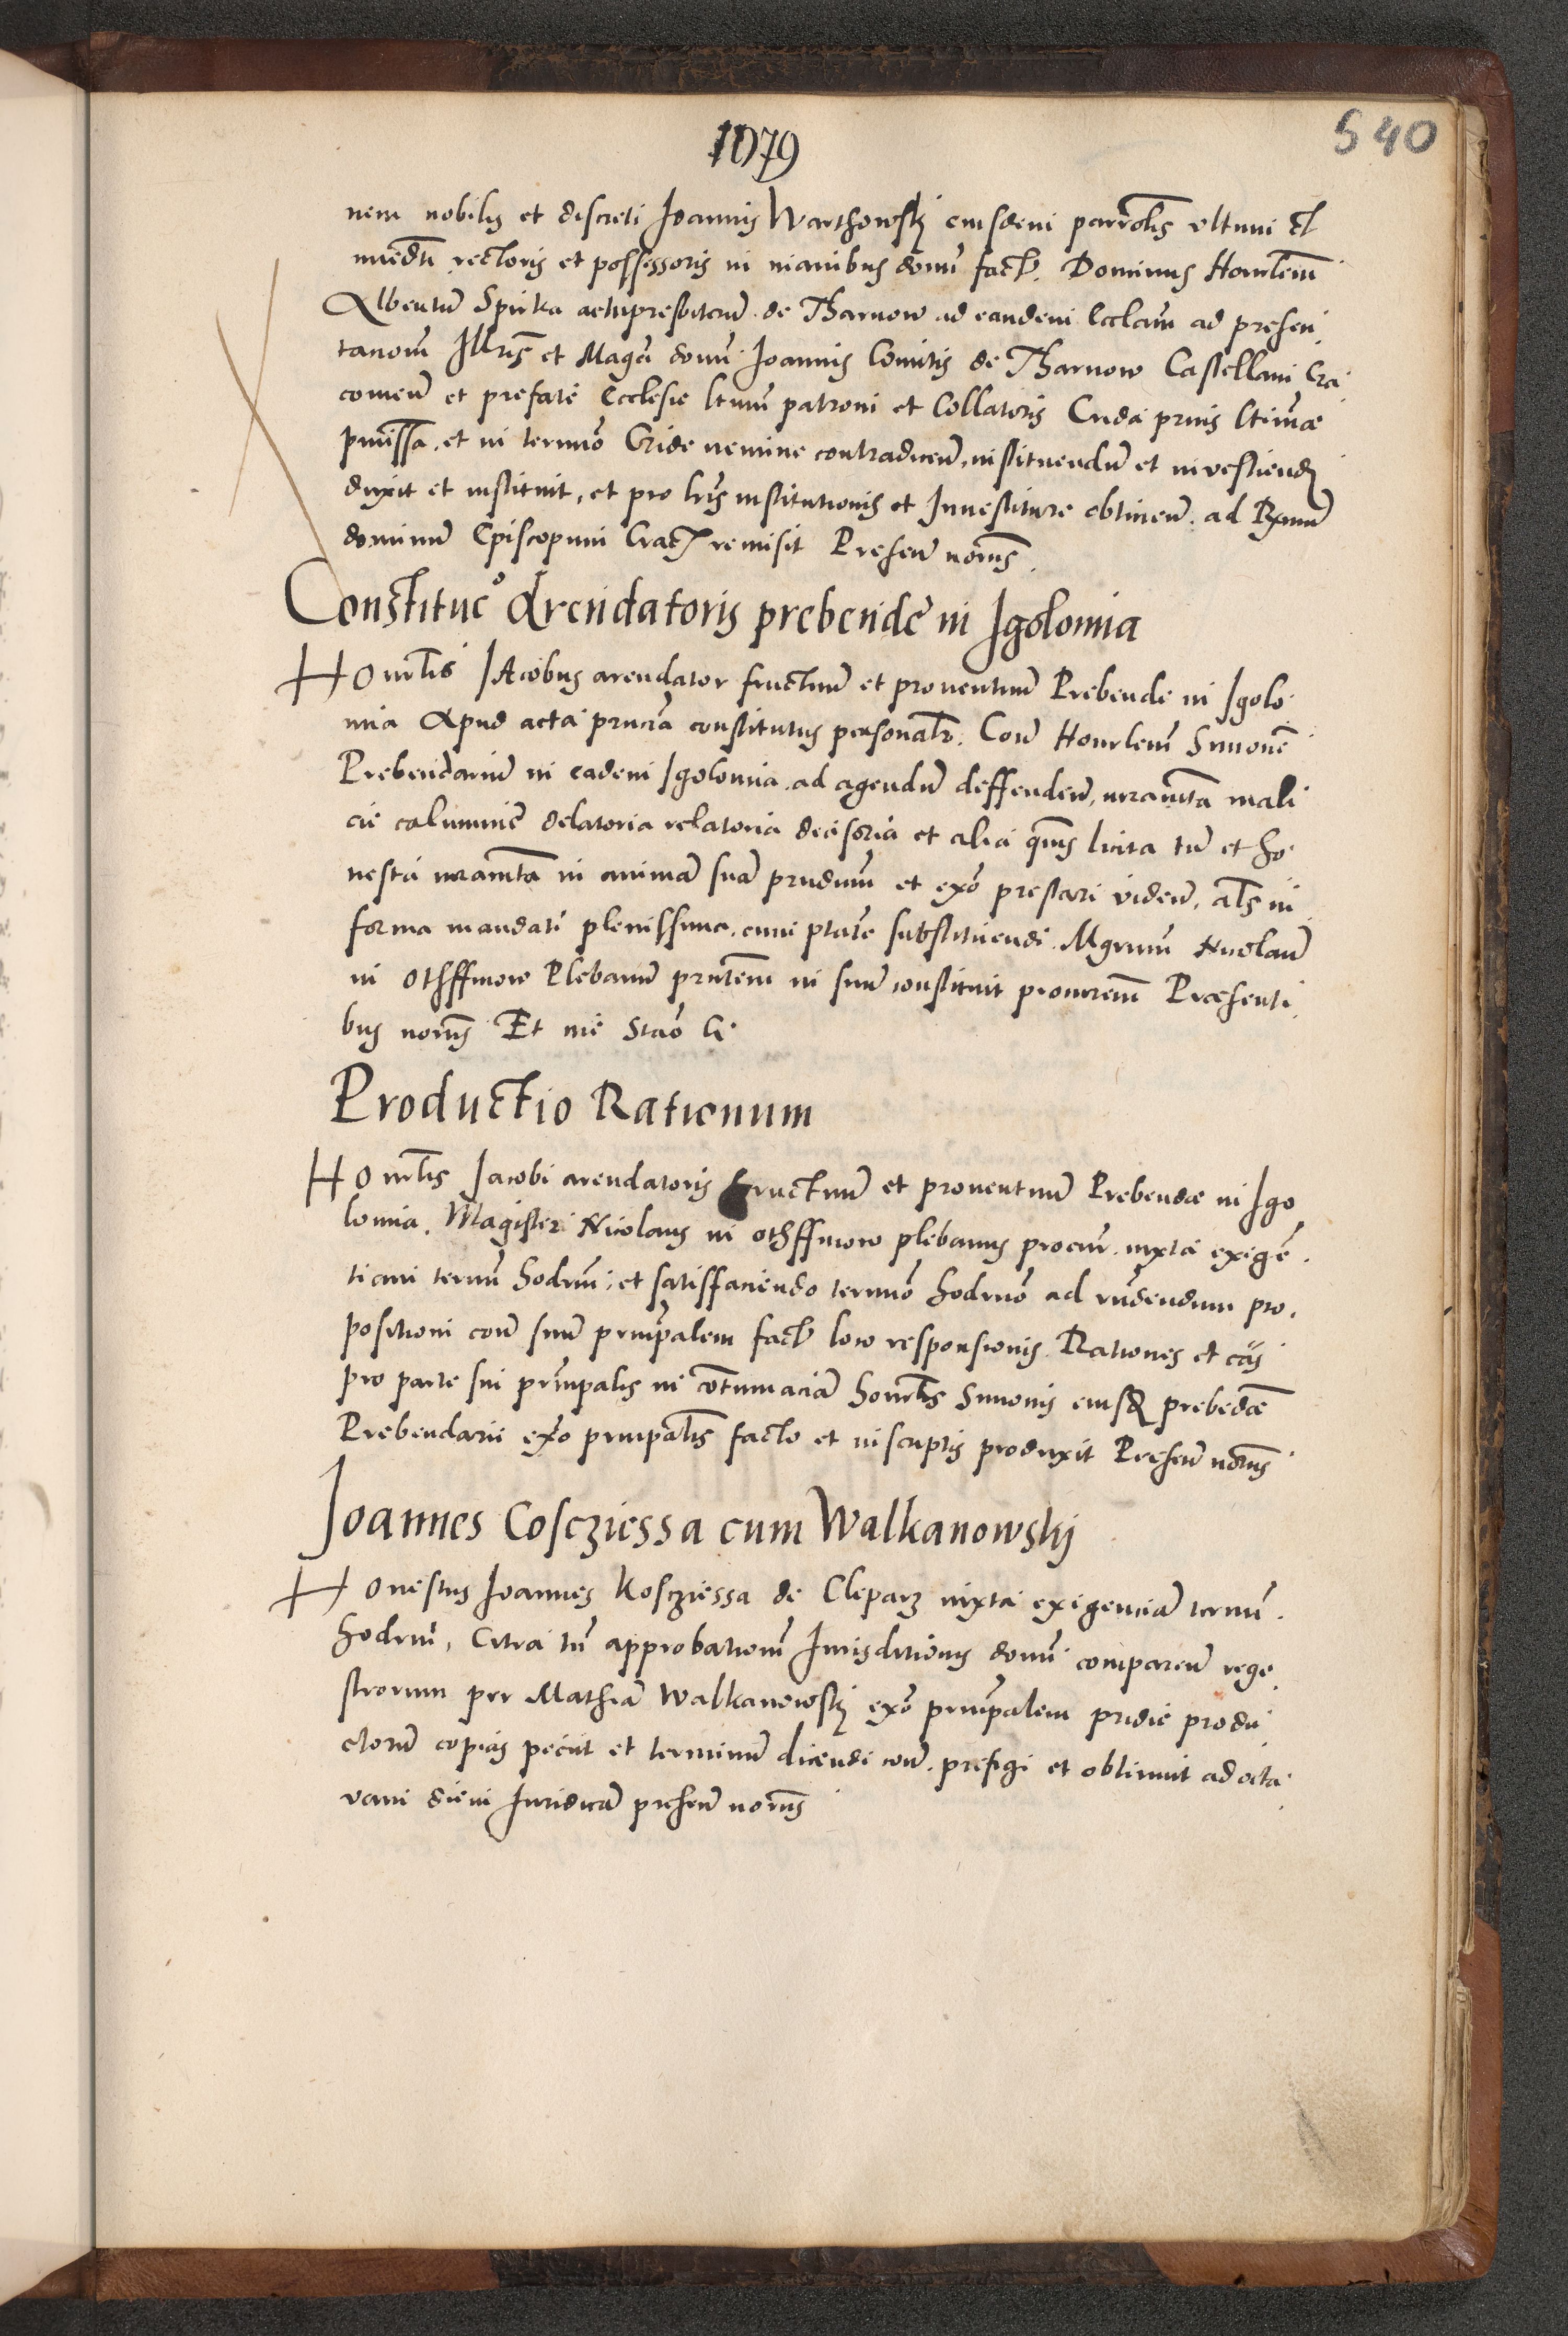 1079
540
nem nobilis et discreti Joannis Warthowskÿ eiusdem parrolis vltimi et
imedti rectoris et possessoris in manibus domi fact. Dominus Honrlem
Albertum Spirka actupresbiterum de Tharnow ad eandem Ecclam ad presen
tanom Illris et Magci domi Joannis Comitis de Tharnow Castellani Cra
comen et prefate Ecclesie ltimi patroni et Collatoris Crida prius ltime
pmissa, et in termo Cride nemine contradicen, instituendum et investiend
duxit et instituit, et pro lris institutionis et Investiture obtinen. ad Rxmum
dominum Episcopum Crac remisit Presen norijs.
Constituco Arendatoris prebende in Jgolomia
Honrlis Jacobus arendator fructuum et proventuum Prebende in Jgolo
mia Apud acta prncia constitutus personalr. Con Honrlem Simone
Prebendarium in eadem Jgolomia ad agendum deffenden, iuramta mali
cie calumnie delatoria relatoria decisoria et alia quis licita tn et ho
nesta iuramta in animam suam prndium et exo prestari viden, als in
forma mandati plenissima, cum ptate substituendi Mgrum Nicolaum
in Othffinow Plebanum prntem in suum constituit procrem Præsenti
bus norijs Et me Stao Cz
Productio Rationum
Honrlis Jacobi arendatoris fructuum et proventuum Prebendæ in Jgo
lomia, Magister Nicolaus in othffinow plebanus procur. iuxta exigen
tiam termi hodrni, et satisffaciendo termo hodrno ad rndendum pro
positioni con suum prinpalem fact loco responsionis Rationes et cas
pro parte sui prinpalis in contumaciam honrlis Simonis eiusd prebedæ
Prebendarii exo prinpalis facto et in scriptis produxit Presen norijs
Joannes Coscziessa cum Walkanowskÿ
Honestus Joannes Kosczièssa de Clepârz iuxta exigenciam termi
hodrni, Citra tn approbationem Jurisditionis domi comparen rege
strorum per Mathiam Walkanowskÿ exo prinpalem pridie produ
ctorum copias peciit et terminum dicendi con. prefigi et obtinuit ad octa
vam diem Juridicam presen norijs